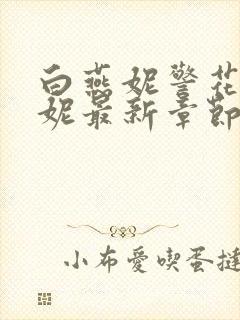 白燕妮警花
妮最新章節
小布愛喫蛋撻